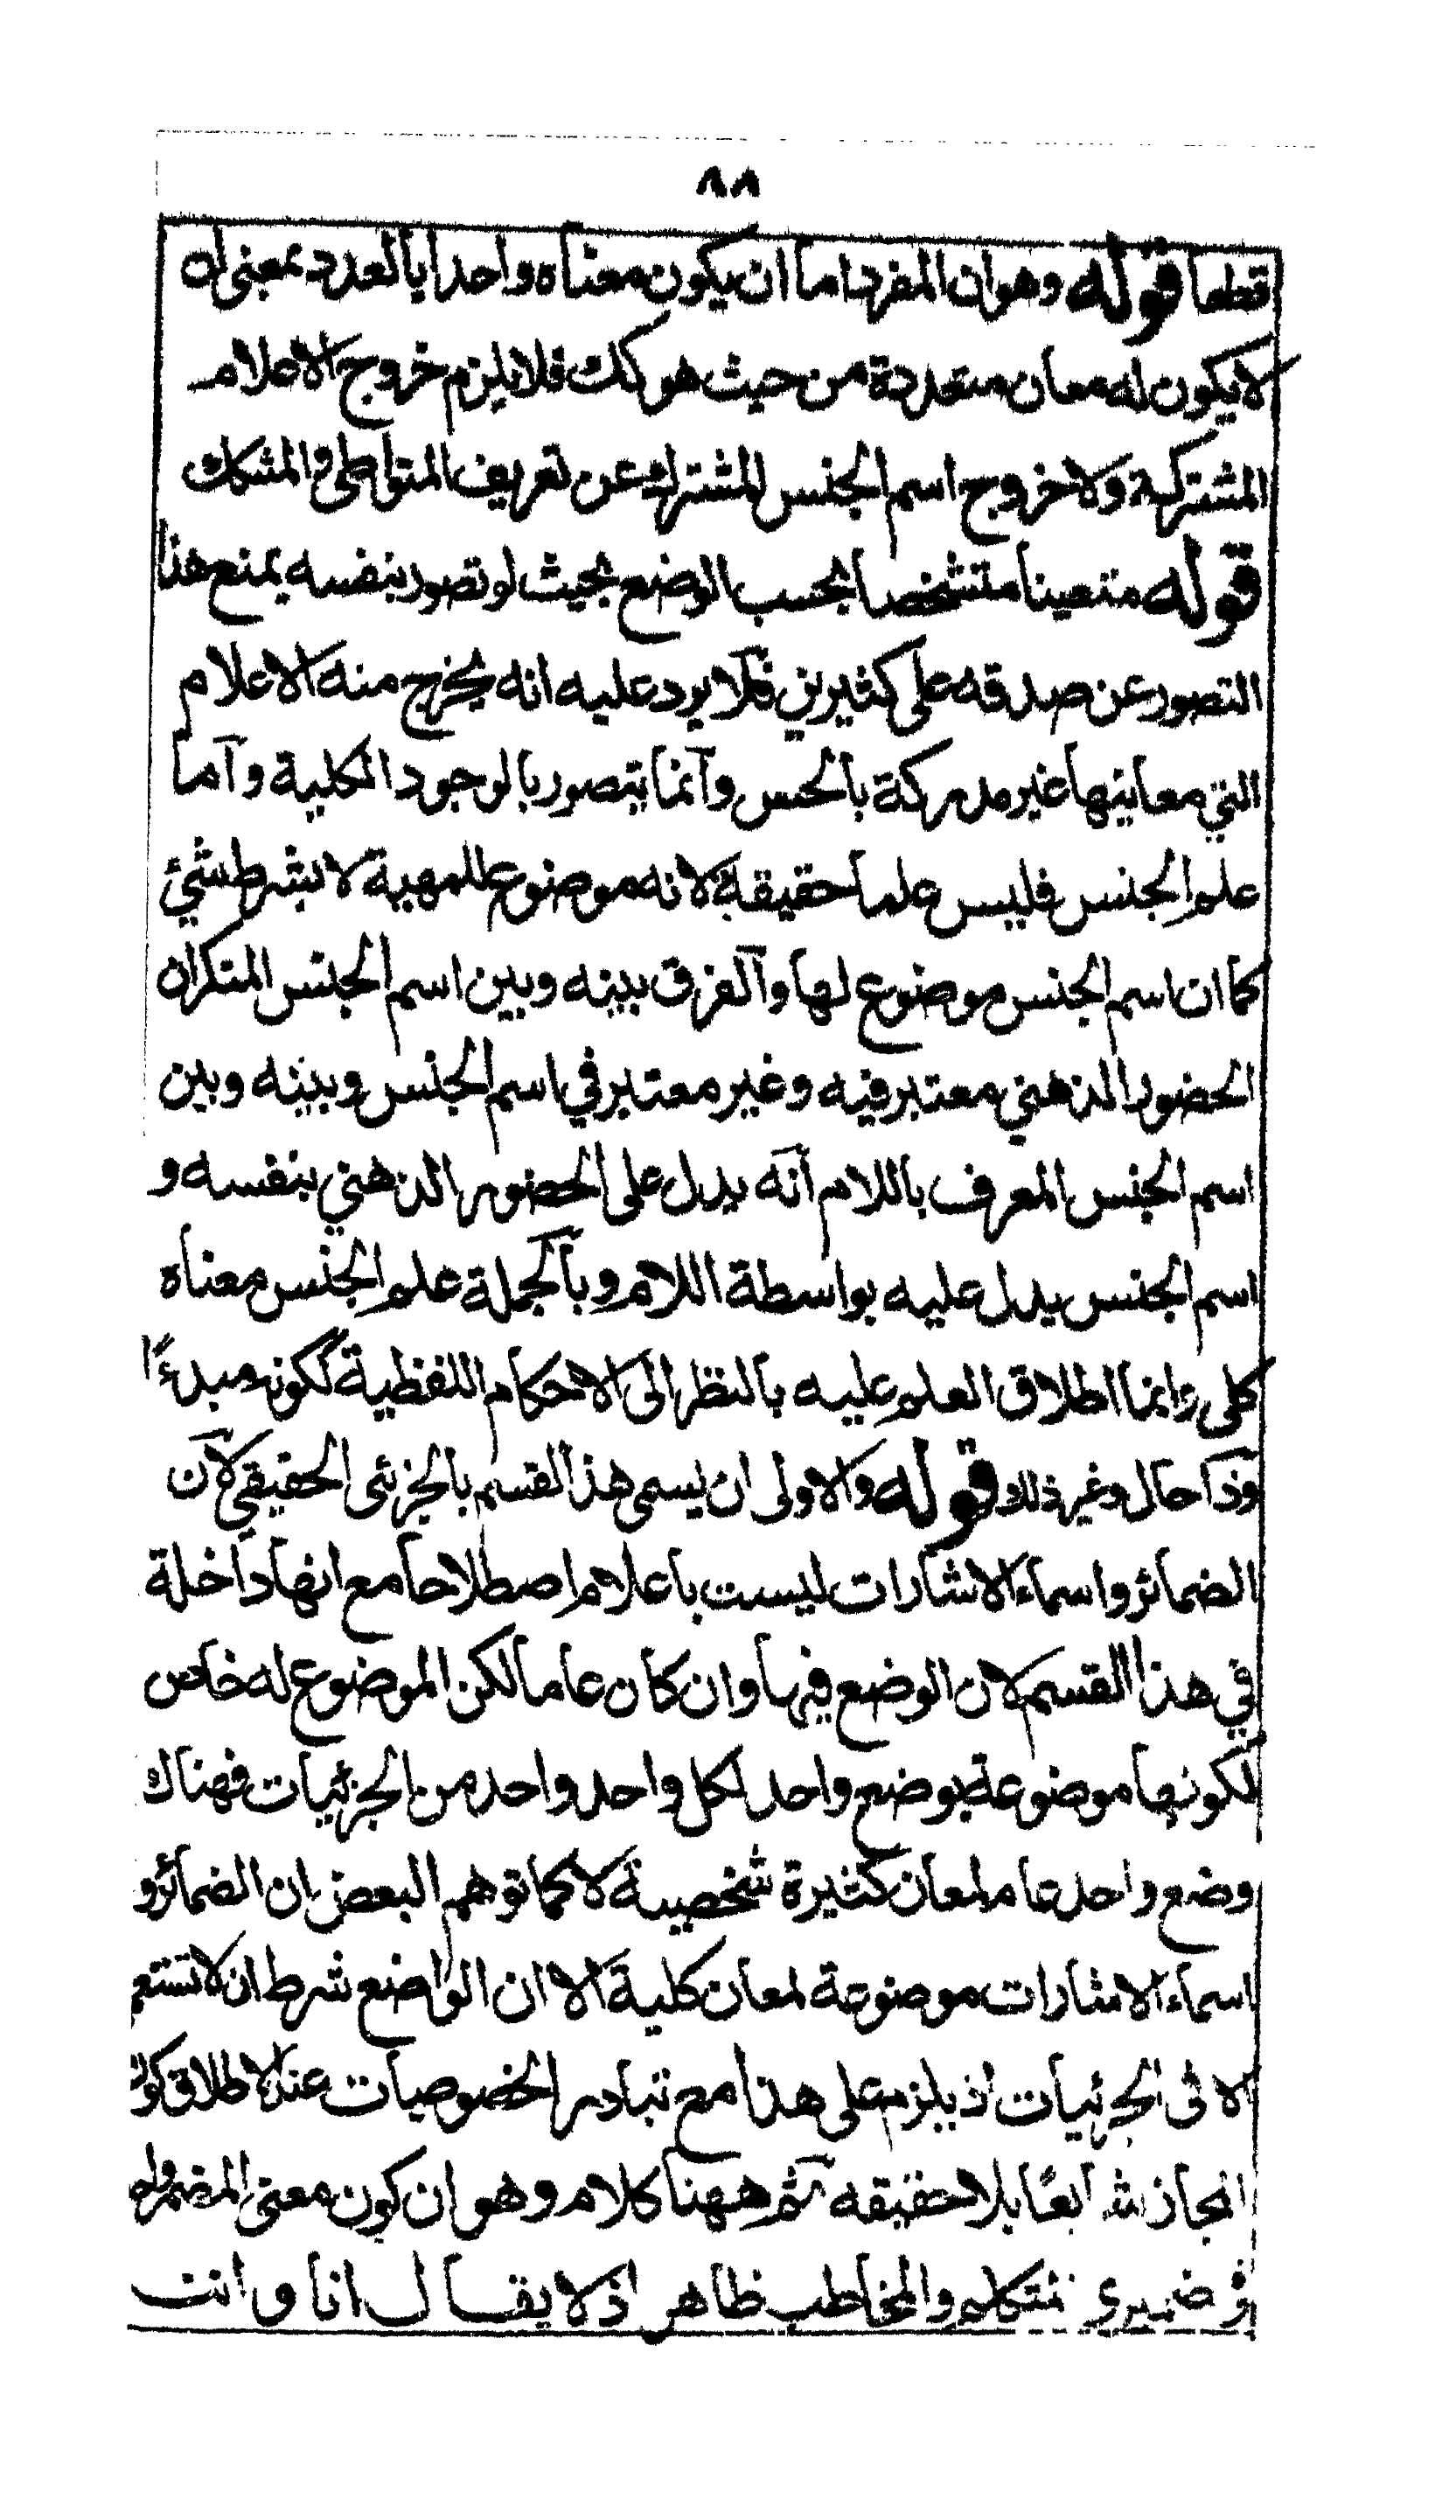 ٨٨
قطعا قوله وهو ان المفرد اما ان يكون معناه واحدا بالعدد بمعنى انه
لا يكون له معان متعددة من حيث هو كك فلا يلزم خروج الاعلام
المشتركة ولا خروج اسم الجنس المشترك عن تعريف المتواطى والمشكك
قوله متعينا متشخصا بحسب الوضع بحيث لو تصور بنفسه يمنع هذا
التصور عن صدقه على كثيرين فلا يرد عليه انه يخرج منه الاعلام
التي معانيها غير مدركة بالحس وانما يتصور بالوجود الكلية واما
علم الجنس فليس علما حقيقة لانه موضوع للمهية لا بشرط شئ
كما ان اسم الجنس موضوع لها والفرق بينه وبين اسم الجنس المنكر ان
الحضور الذهني معتبر فيه وغير معتبر في اسم الجنس وبينه وبين
اسم الجنس المعرف باللام انه يدل على الحضور الذهني بنفسه و
اسم الجنس يدل عليه بواسطة اللام وبالجملة علم الجنس معناه
كلى وانما اطلاق العلم عليه بالنظر الى الاحكام اللفظية لكونه مبدءًا
وذا حال وغير ذلك قوله والاولى ان يسمى هذا القسم بالجزئى الحقيقي لان
الضمائر واسماء الاشارات ليست باعلام اصطلاحا مع انها داخلة
في هذا القسم لان الوضع فيها وان كان عاما لكن الموضوع له خاص
لكونها موضوعة بوضع واحد لكل واحد واحد من الجزئيات فهناك
وضع واحد عام لمعان كثيرة شخصية لا كما توهم البعض ان الضمائر و
اسماء الاشارات موضوعة لمعان كلية الا ان الواضع شرط ان لا تستعم
الا فى الجزئيات اذ يلزم على هذا مع تبادر الخصوصيات عند الاطلاق كون
المجاز شايعًا بلا حقيقه ثم ههنا كلام وهو ان كون معنى المضمر
فى ضميرى المتكلم والمخاطب ظاهر اذ لا يقال انا وانت